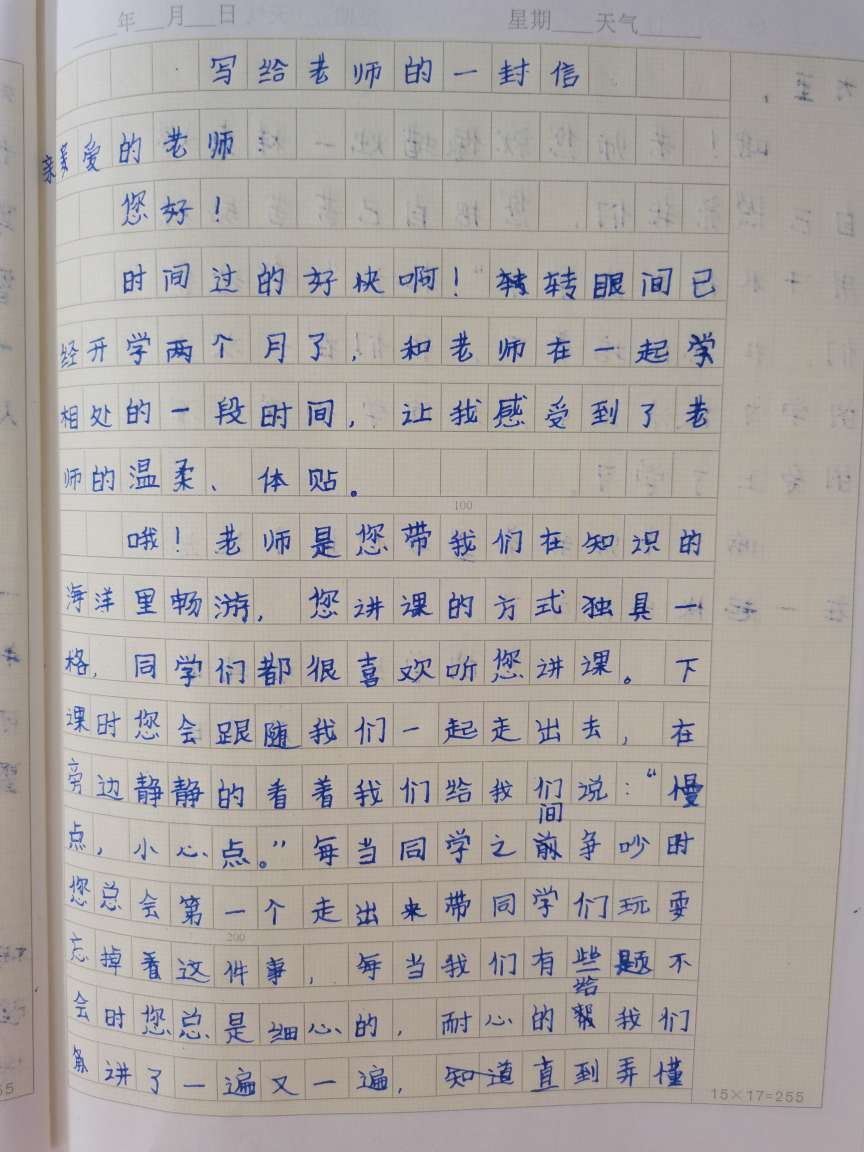 年 月 日 星期 天气
写给老师的一封信
亲爱的老师：
您好！
时间过的好快啊！转转眼间已
经开学两个月了，和老师在一起学
相处的一段时间，让我感受到了老
师的温柔、体贴。
100
哦！老师是您带我们在知识的
海洋里畅游，您讲课的方式独具一
格，同学们都很喜欢听您讲课。下
课时您会跟随我们一起走出去，在
旁边静静的看着我们给我们说：“慢
点，小心点。”每当同学之间争吵时
您总会第一个走出来带同学们玩耍
200
忘掉看这件事，每当我们有些题不
会时您总是细心的，耐心的给我们
讲了一遍又一遍，直到弄懂
15×17=255